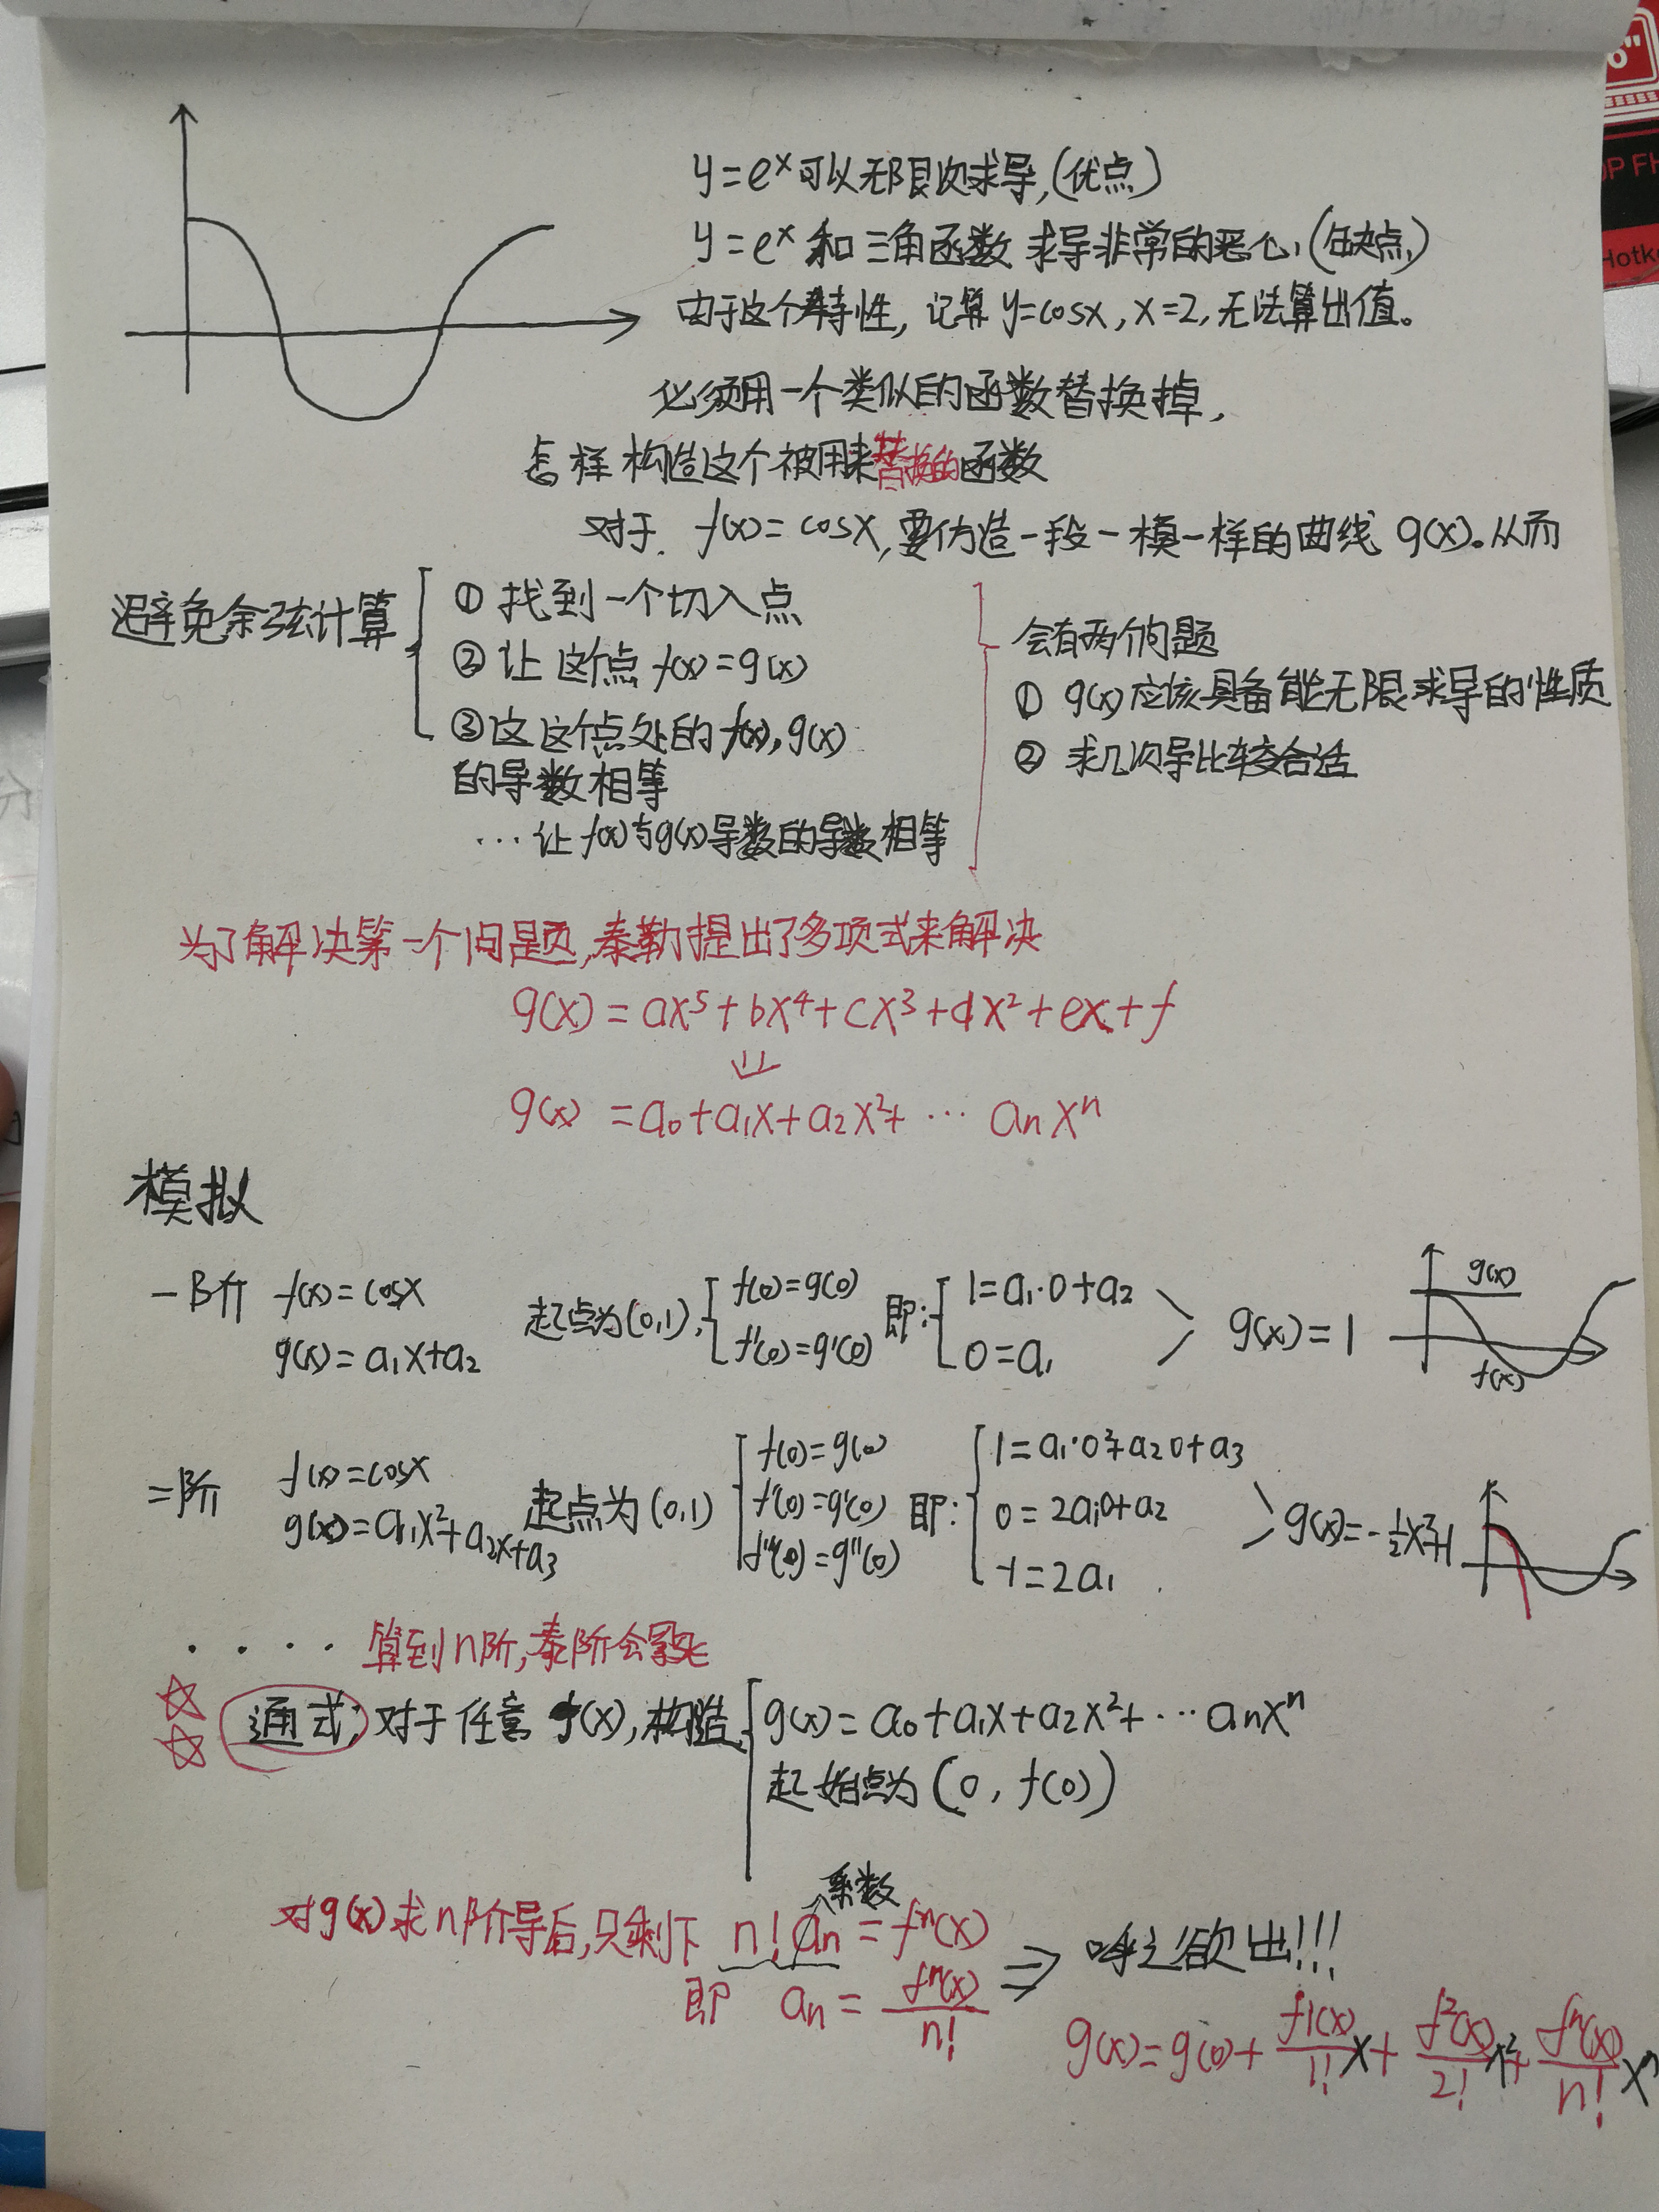 y=eˣ可以无限次求导,(优点)
y=eˣ 和 三角函数 求导非常的恶心,(缺点)
由于这个特性, 记算 y=cosx, x=2, 无法算出值。
必须用一个类似的函数替换掉,
怎样构造这个被用来替换的函数
对于 f(x)=cosx,要伪造一段一模一样的曲线 g(x)。从而
避免余弦计算
① 找到一个切入点
② 让这个点 f(x)=g(x)
③ 这这个点处的 f(x),g(x)
的导数相等
… 让 f(x)与g(x)导数的导数相等
会有两个问题
① g(x) 应该具备能无限求导的性质
② 求几次导比较合适
为了解决第一个问题,泰勒提出了多项式来解决
g(x)=ax⁵+bx⁴+cx³+dx²+ex+f
⇓
g(x)=a₀+a₁x+a₂x²+… aₙxⁿ
模拟
一阶 f(x)=cosx
g(x)=a₁x+a₂
起点为(0,1),
f(0)=g(0)
f'(0)=g'(0)
即:
1=a₁·0+a₂
0=a₁
g(x)=1
g(x)
f(x)
二阶 f(x)=cosx
g(x)=a₁x²+a₂x+a₃
起点为(0,1)
f(0)=g(0)
f'(0)=g'(0)
f''(0)=g''(0)
即:
1=a₁·0²+a₂0+a₃
0=2a₁0+a₂
-1=2a₁
g(x)=-½x²+1
・・・・ 算到n阶,泰阶会累死
通式; 对于任意 f(x),构造
g(x)=a₀+a₁x+a₂x²+…aₙxⁿ
起始点为(0, f(0))
系数
对g(x)求n阶导后,只剩下 n!aₙ=fⁿ(x)
即 aₙ=fⁿ(x)/n!
⇒ 呼之欲出!!!
g(x)=g(0)+f1(x)/1! x+f²(x)/2! x²+fⁿ(x)/n! xⁿ
6"
OP FH
Hotke